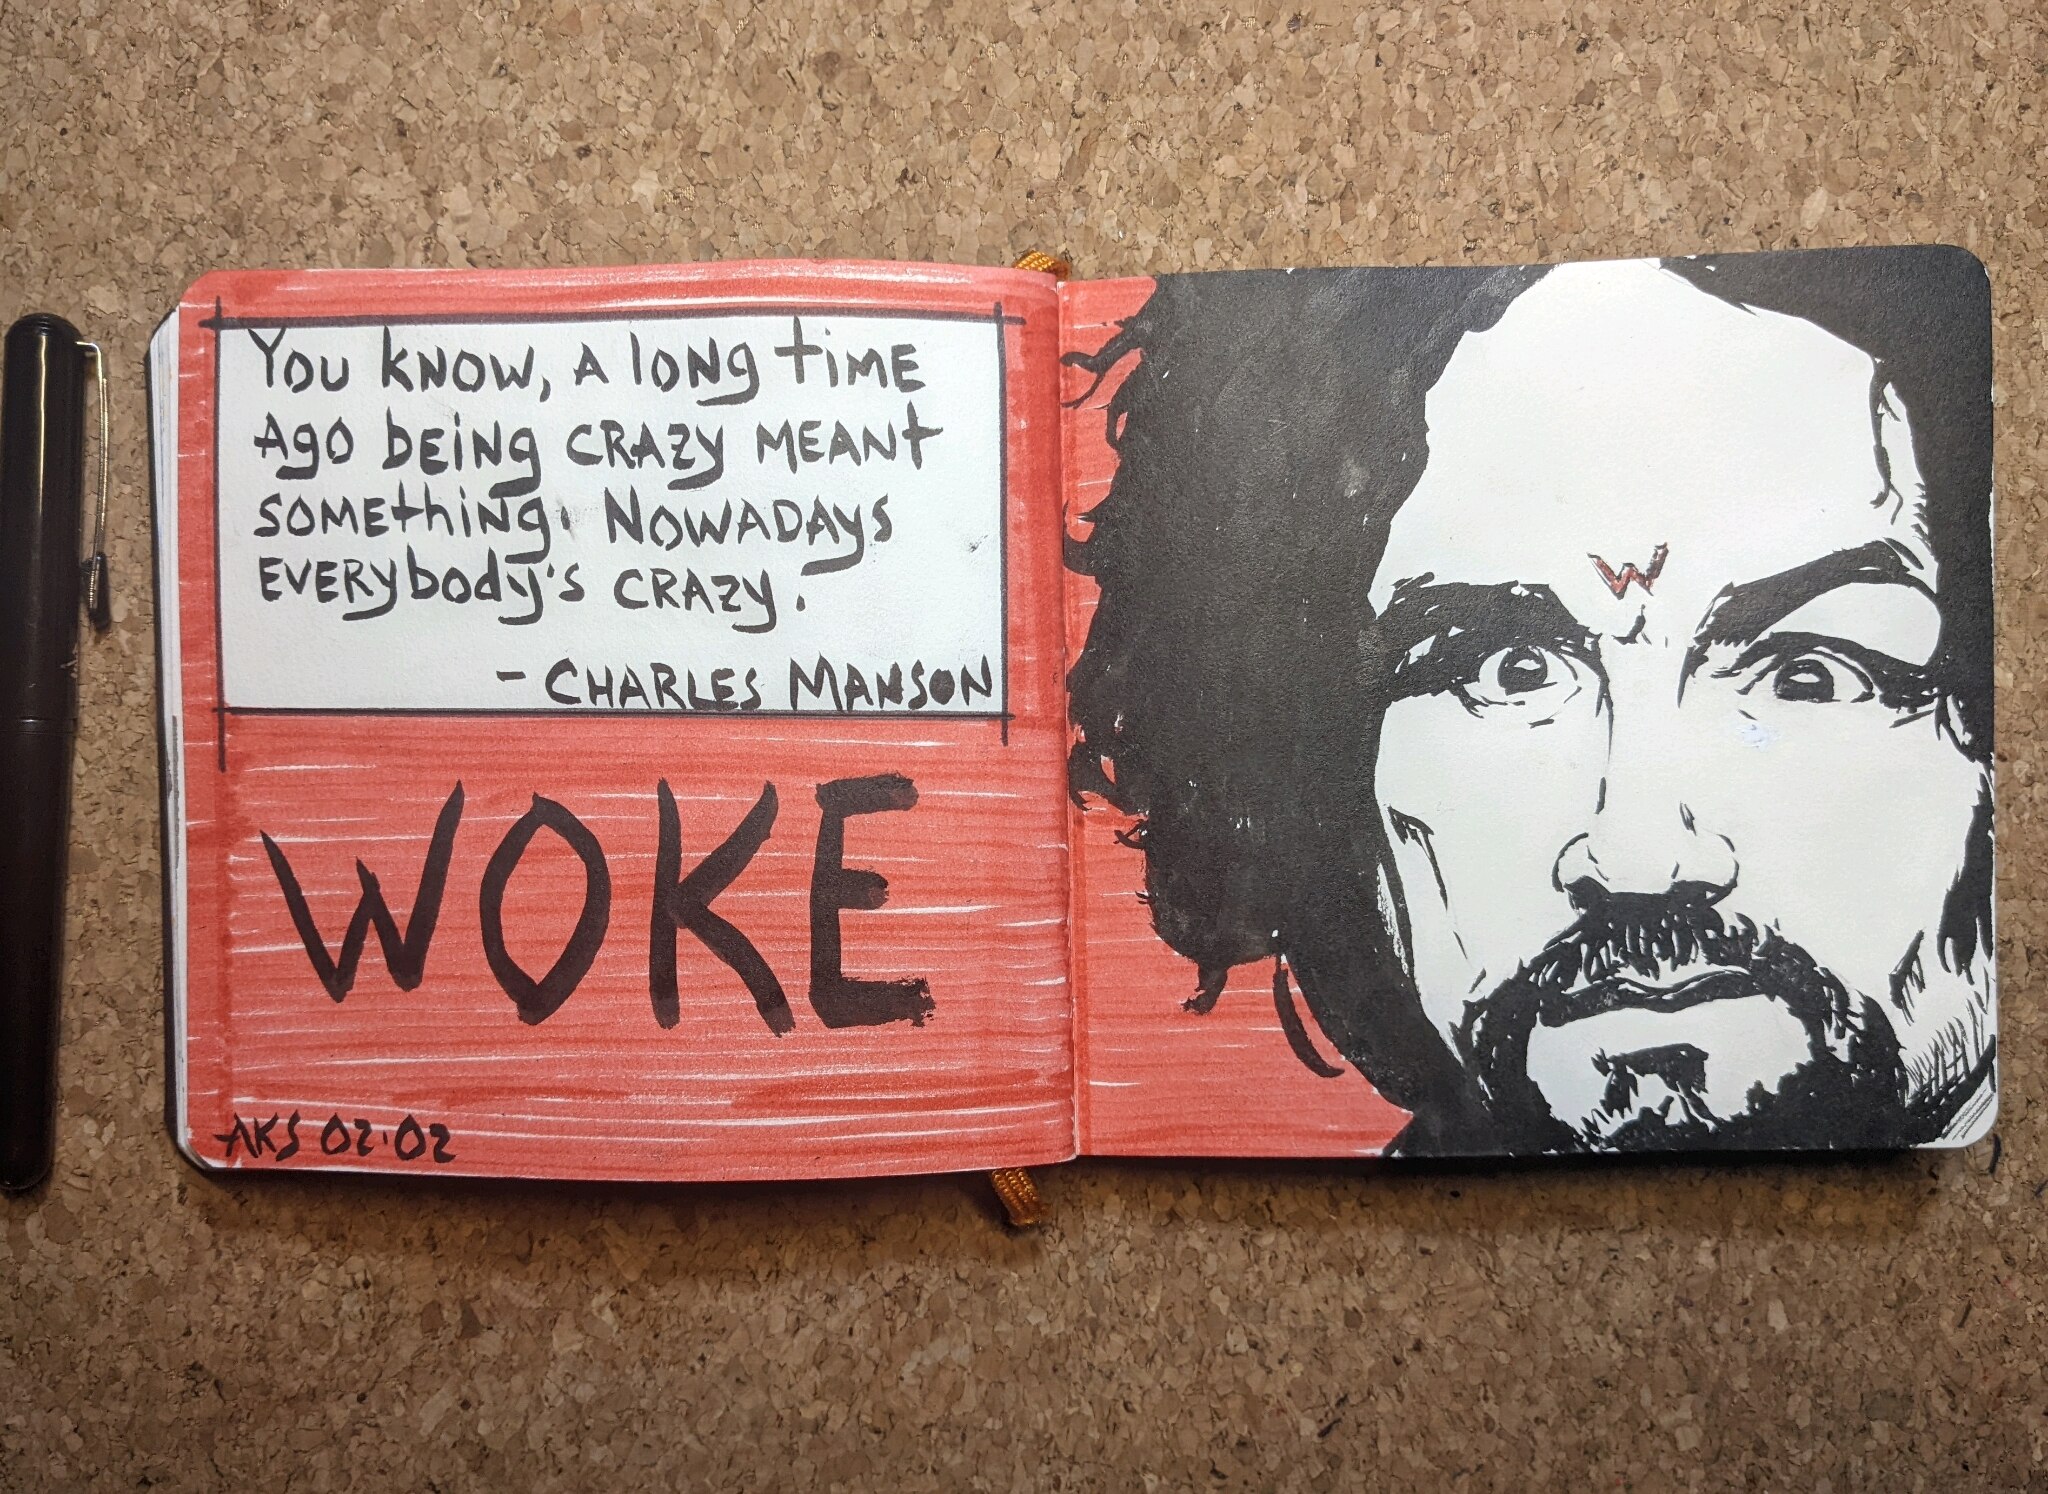 You know, a long time
ago being crazy meant
something. Nowadays
everybody's crazy.
- Charles Manson
WOKE
AKS 02.02
W